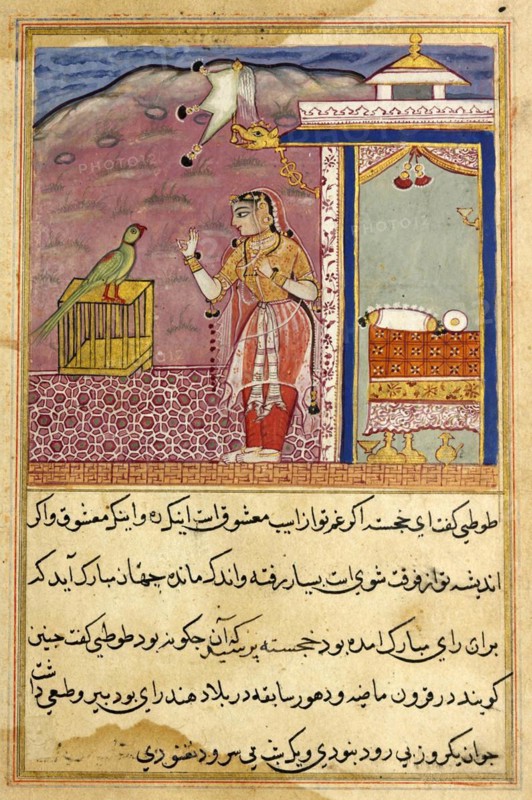 طوطی گفت ای خجسته اگر غم تو از سبب معشوق است اینک ره و اینک معشوق و اگر
اندیشه تو از فرقت شوی است بسیار رفته و اندک مانده چهان مبارک آید که
برای رای مبارک امده بود خجسته پرسید که آن چکونه بود طوطی گفت چنین
کویند در قرون ماضیه و دهور سابقه در بلاد هند رای بود پیر و طبعی داشت
جوان یکروز بی رود نبودی و یک شب بی سرود نغنودی
PHOTO12